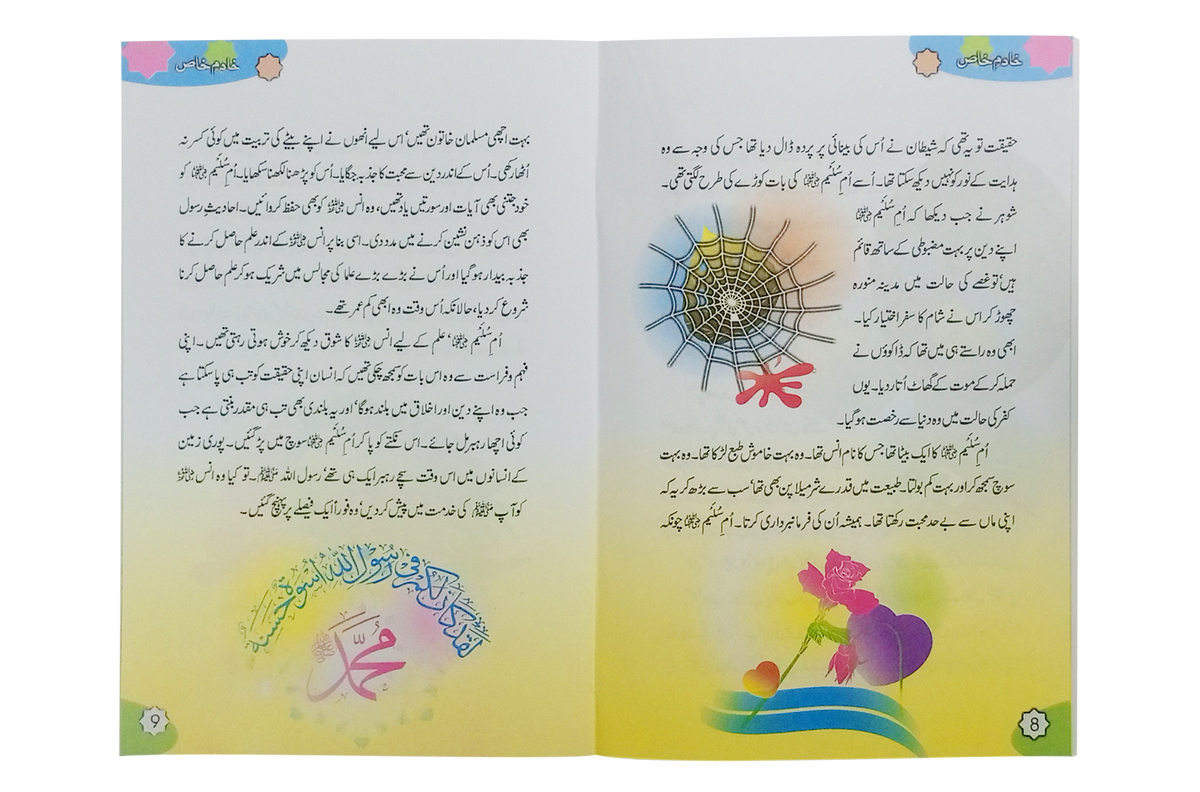 خادمِ خاص
حقیقت تو یہ تھی کہ شیطان نے اُس کی بینائی پر پردہ ڈال دیا تھا جس کی وجہ سے وہ
ہدایت کے نور کو نہیں دیکھ سکتا تھا۔ اُسے اُمِ سُلَیم رضی اللہ عنہا کی بات کوڑے کی طرح لگتی تھی۔
شوہر نے جب دیکھا کہ اُمِ سُلَیم رضی اللہ عنہا
اپنے دین پر بہت مضبوطی کے ساتھ قائم
ہیں‘ تو غصے کی حالت میں مدینہ منورہ
چھوڑ کر اس نے شام کا سفر اختیار کیا۔
ابھی وہ راستے ہی میں تھا کہ ڈاکوؤں نے
حملہ کر کے موت کے گھاٹ اُتار دیا۔ یوں
کفر کی حالت میں وہ دنیا سے رخصت ہو گیا۔
اُمِ سُلَیم رضی اللہ عنہا کا ایک بیٹا تھا جس کا نام انس تھا۔ وہ بہت خاموش طبع لڑکا تھا۔ وہ بہت
سوچ سمجھ کر اور بہت کم بولتا۔ طبیعت میں قدرے شرمیلا پن بھی تھا‘ سب سے بڑھ کر یہ کہ
اپنی ماں سے بے حد محبت رکھتا تھا۔ ہمیشہ اُن کی فرمانبرداری کرتا۔ اُمِ سُلَیم رضی اللہ عنہا چونکہ
8
خادمِ خاص
بہت اچھی مسلمان خاتون تھیں‘ اس لیے انھوں نے اپنے بیٹے کی تربیت میں کوئی کسر نہ
اُٹھا رکھی۔ اُس کے اندر دین سے محبت کا جذبہ جگایا۔ اُس کو پڑھنا لکھنا سکھایا۔ اُمِ سُلَیم رضی اللہ عنہا کو
خود جتنی بھی آیات اور سورتیں یاد تھیں، وہ انس رضی اللہ عنہ کو بھی حفظ کروائیں۔ احادیثِ رسول
بھی اس کو ذہن نشین کرنے میں مدد دی۔ اسی بنا پر انس رضی اللہ عنہ کے اندر علم حاصل کرنے کا
جذبہ بیدار ہو گیا اور اُس نے بڑے بڑے علما کی مجالس میں شریک ہو کر علم حاصل کرنا
شروع کر دیا، حالانکہ اُس وقت وہ ابھی کم عمر تھے۔
اُمِ سُلَیم رضی اللہ عنہا‘ علم کے لیے انس رضی اللہ عنہ کا شوق دیکھ کر خوش ہوتی رہتی تھیں۔ اپنی
فہم و فراست سے وہ اس بات کو سمجھ چکی تھیں کہ انسان اپنی حقیقت کو تب ہی پا سکتا ہے
جب وہ اپنے دین اور اخلاق میں بلند ہو گا‘ اور یہ بلندی بھی تب ہی مقدر بنتی ہے جب
کوئی اچھا رہبر مل جائے۔ اس نکتے کو پا کر اُمِ سُلَیم رضی اللہ عنہا سوچ میں پڑ گئیں۔ پوری زمین
کے انسانوں میں اس وقت سچے رہبر ایک ہی تھے‘ رسول اللہ ﷺ۔ تو کیا وہ انس رضی اللہ عنہ
کو آپ ﷺ کی خدمت میں پیش کر دیں‘ وہ فوراً ایک فیصلے پر پہنچ گئیں۔
لقد کان لکم فی رسول اللہ اسوۃ حسنۃ
محمد ﷺ
9